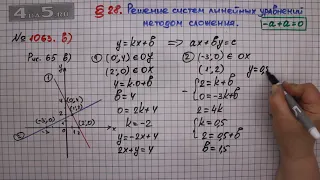 4 ДЛЯ 5
§ 28. Решение систем линейных уравнений
методом сложения.
-a+a=0
№ 1063. в)
Рис. 65 в)
y=kx+b => ax+by=c
① (0,4) ∈ OY
(2;0) ∈ OX
y=k·0+b
b=4
0=2k+4
k=-2
y=-2x+4
2x+y=4
② (-3;0) ∈ OX
(1;2)
{2=k+b
{0=-3k+b
2=4k
{k=0,5
{2=0,5+b
b=1,5
y=0,5
(-3;0)
(1;2)
(2;0)
①
②